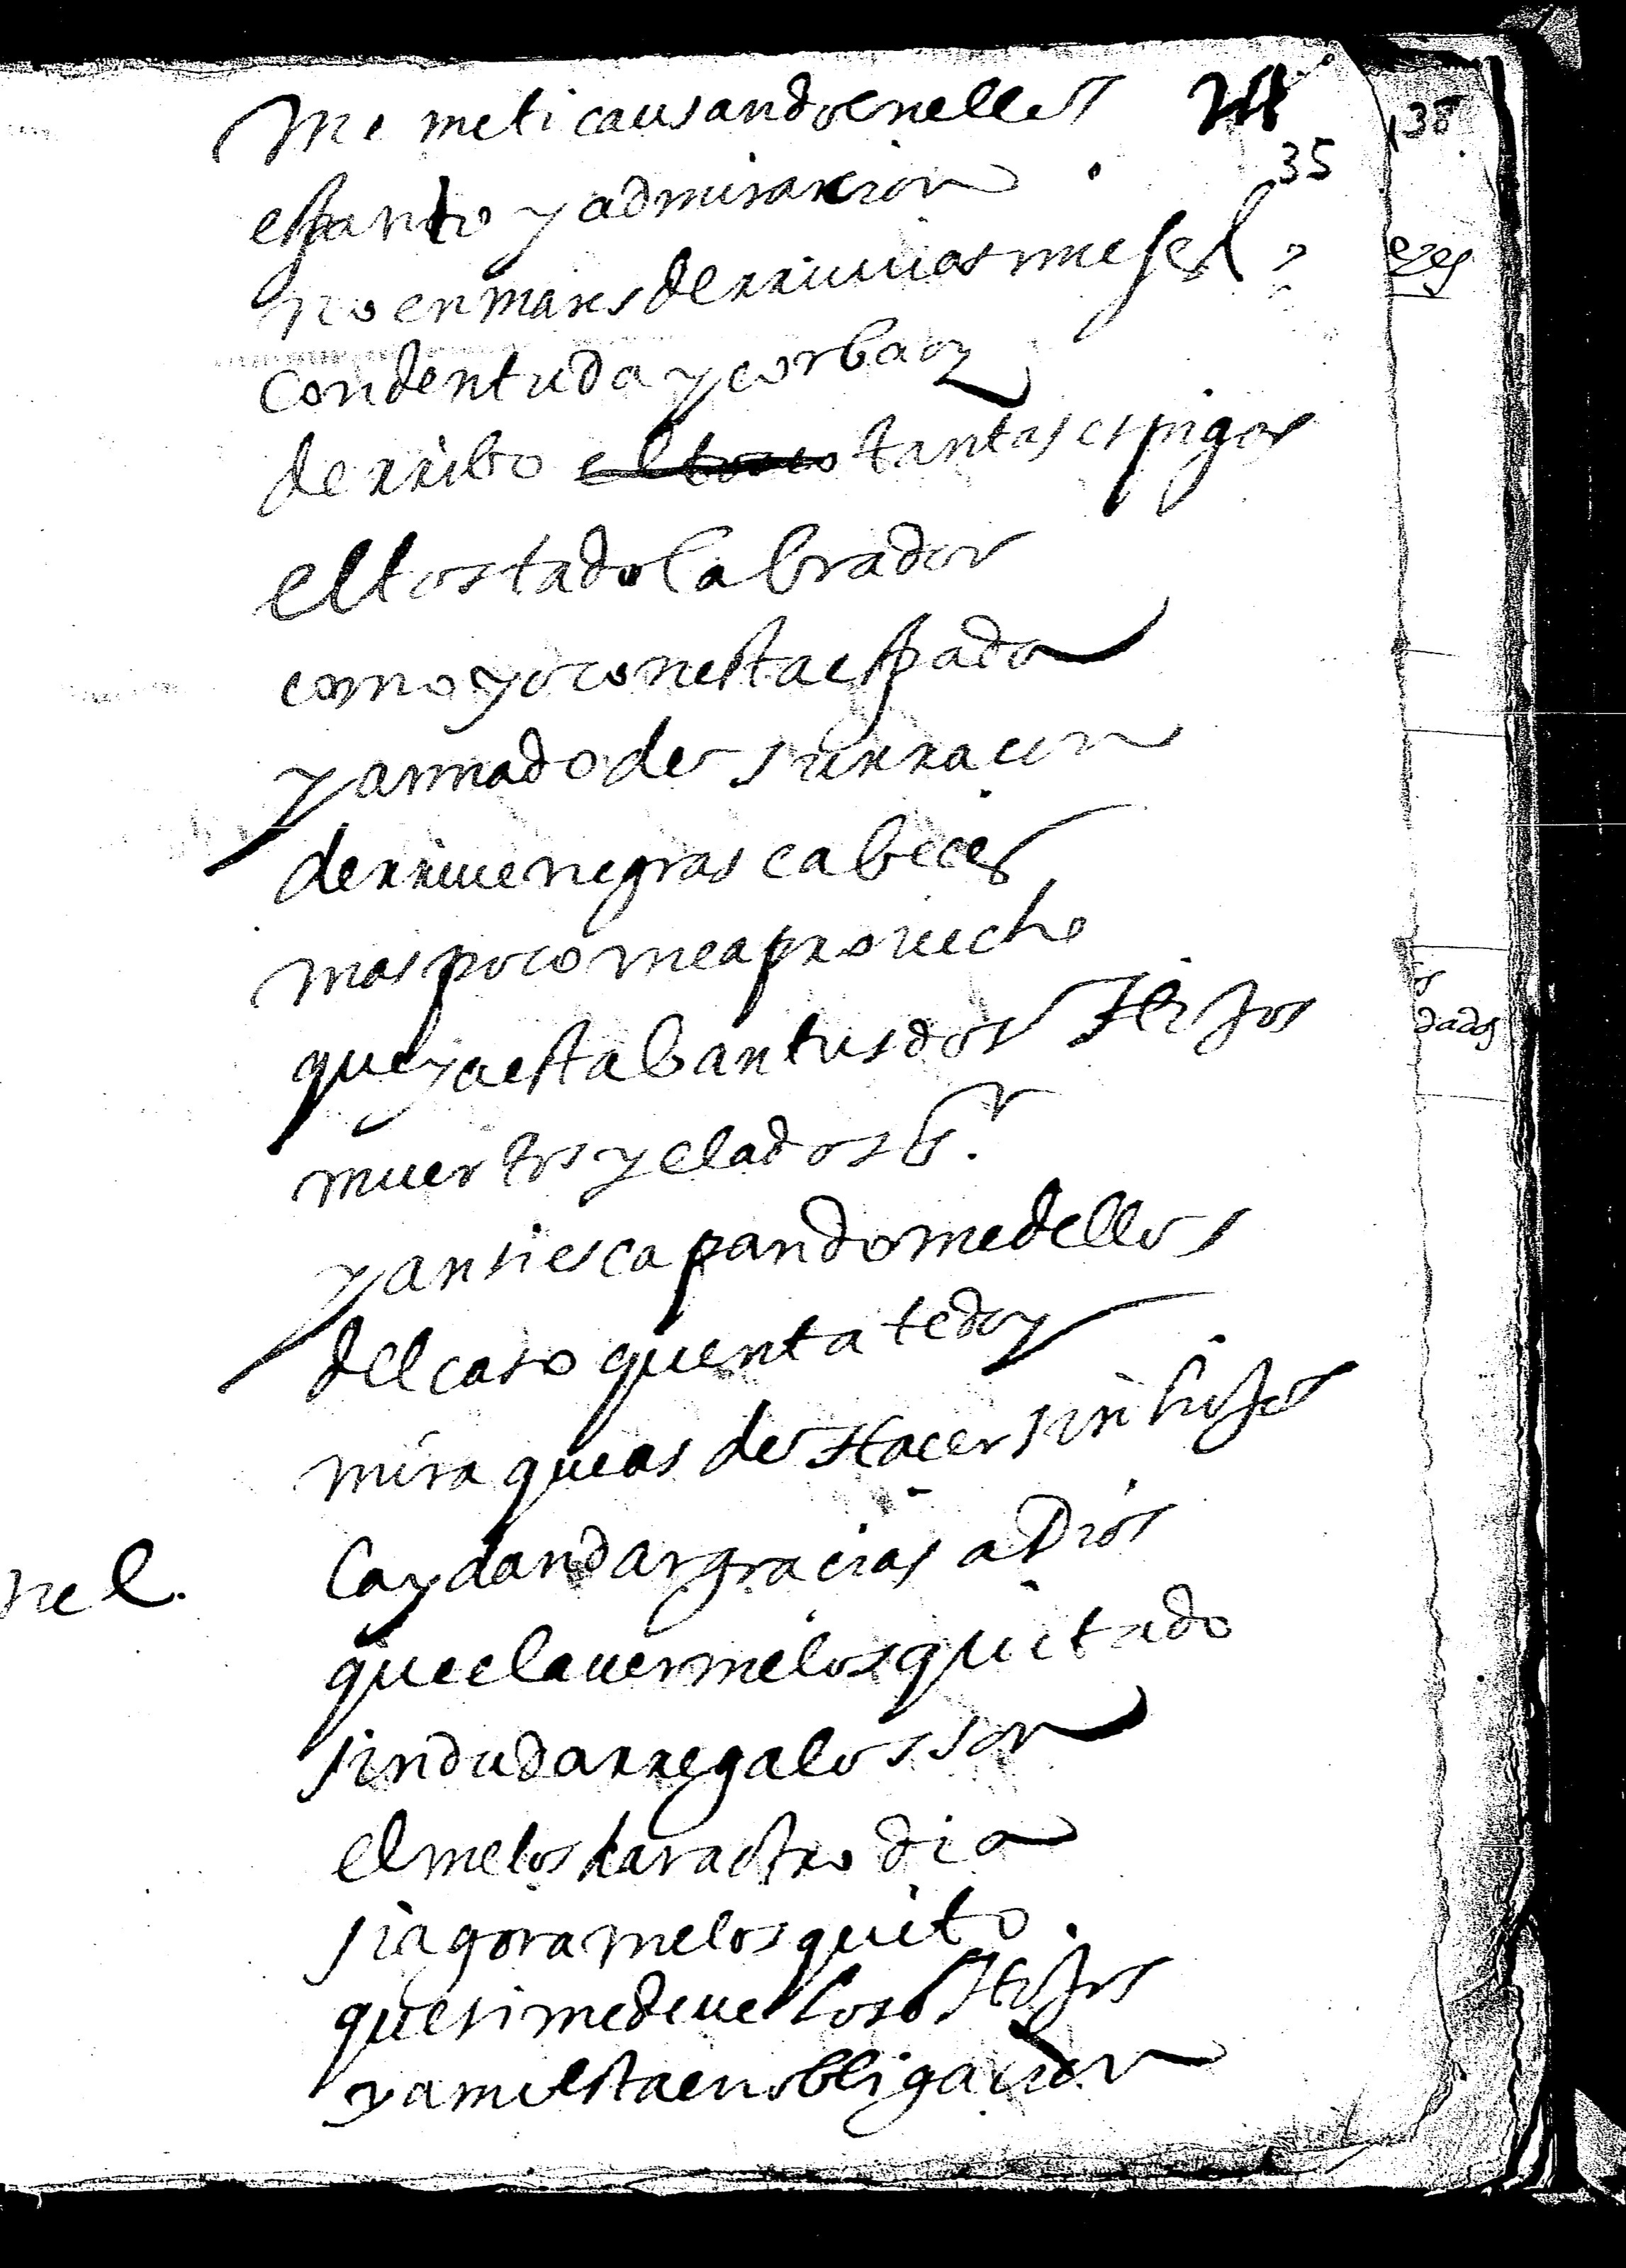 me meti causando en ellos
espanto y admiraxcion
no en mares de rruuias miesesl
con dentuda y corba oz
derribo el tosco tantas espigas
el tostado labrador
como yo con esta espada
y armado de su rracon
derriue negras cabeces
mas poco me aproueche
que ya estaban tus dos Hijos
muertos y elados sr.
y ansi escapandome dellos
del caso quenta te doy
mira que as de Hacer sin hijos
nel. Caydan dar gracias a Dios
que el auermelos quitado
sin duda rregalos son
el me los dara otro dia
si agora me los quito.
que si me deue los Hijos
ya mi esta en obligacion
35
38
ezes
dados